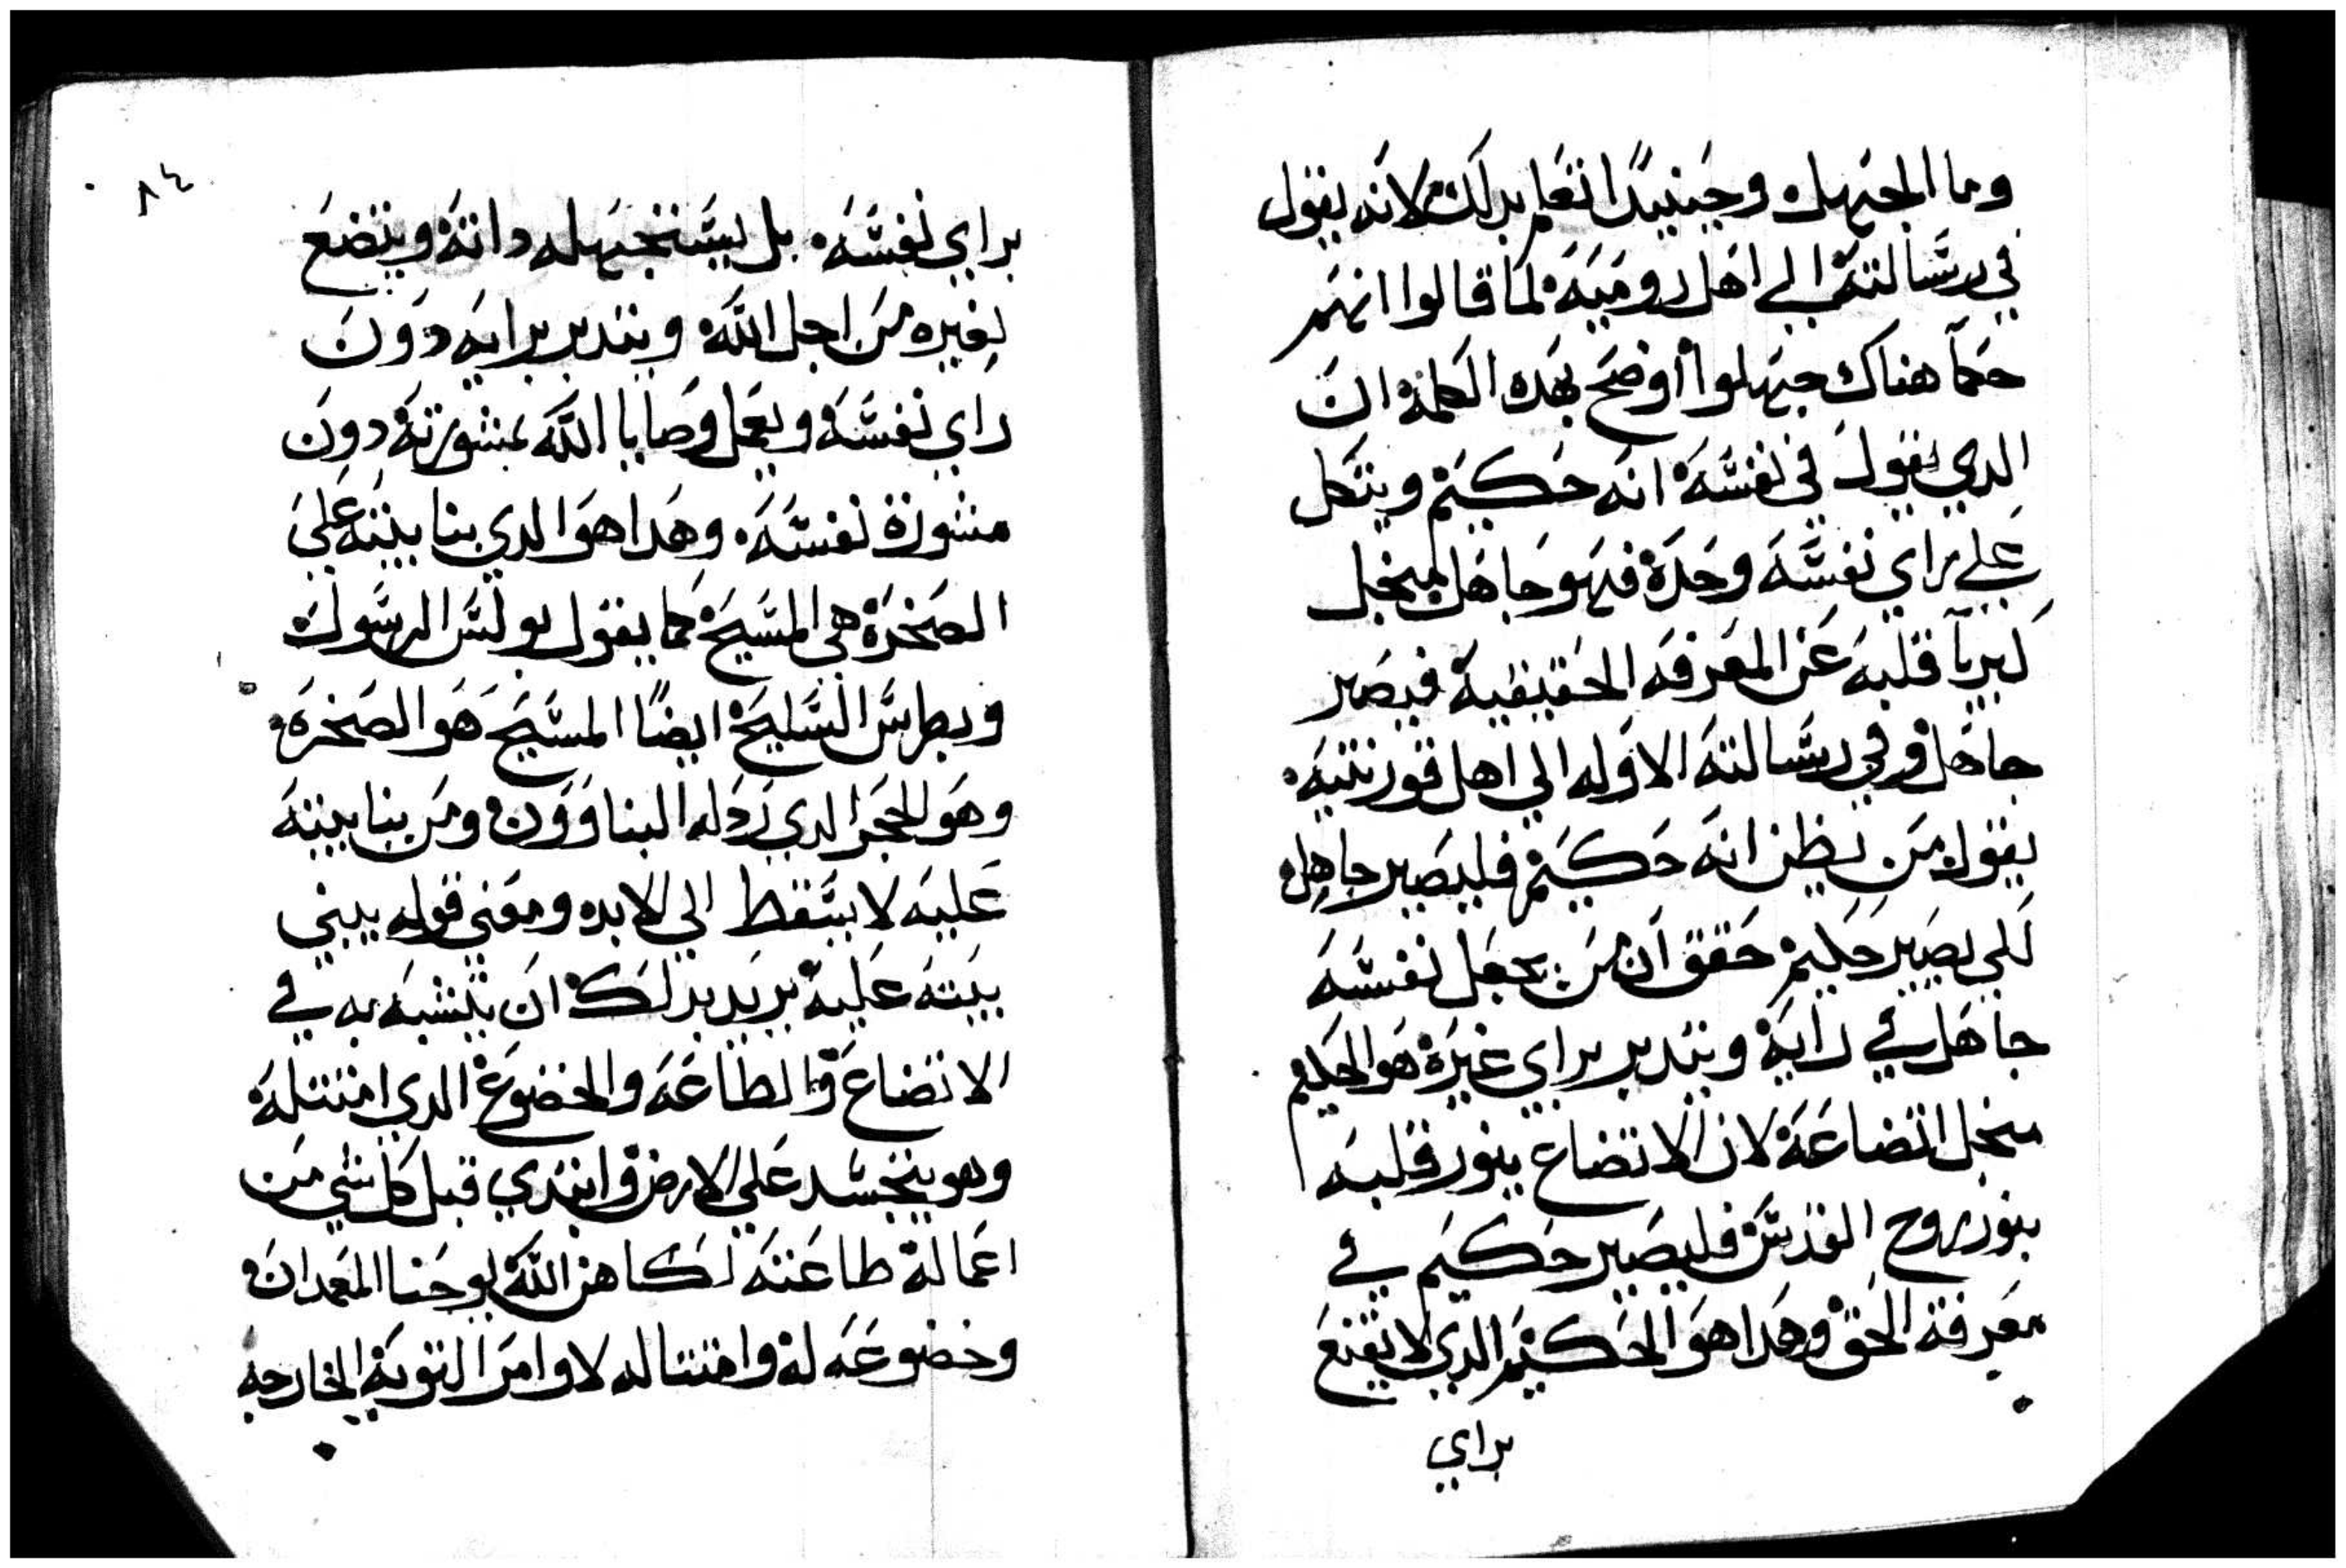 وما الجهل وحينيدًا تعلم بدلك لانه يقول
في رسالته الي اهل روميه لما قالوا انهم
حكمآ هناك جهلوا أوضح بهده الكلمة ان
الدي يقول في نفسه انه حكيم ويتكل
علي راي نفسه وحده فهو جاهل
كبريآ قلبه عن المعرفه الحقيقية فيصير
جاهل وفي رسالته الاوله الي اهل قورنتيه
يقول من يظن انه حكيم فليصير جاهل
لكي يصير حكيم حقق ان من يجعل نفسه
جاهل في رايه ويتدبر براي غيره هو الحكيم
اتضاعه لان الاتضاع ينور قلبه
بنور روح القدس فليصير حكيم في
معرفة الحق وهدا هو الحكيم الدي لا يقنع
براي
٨٤
براي نفسه بل يستجهل داته ويتضع
لغيره من اجل الله ويتدبر برايه دون
راي نفسه ويعمل وصايا الله بمشورته دون
مشورة نفسه وهدا هو الدي بنا بيته علي
الصخرة هي المسيح كما يقول بولس الرسول
وبطرس السليح ايضًا المسيح هو الصخره
وهو الحجر الدي ردله البناوون ومن بنا بيته
عليه لا يسقط الي الابد ومعني قوله يبني
بيته عليه يريد بدلك ان يتشبه به في
الاتضاع والطاعه والخضوع الدي امتثله
وهو يتجسد علي الارض وابتدي قبل كل شي من
اعماله طاعته لكاهن الله يوحنا المعمدان
وخضوعه له وامتثاله لاوامر التوبه الخارجه